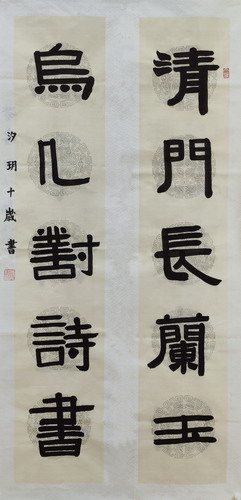 清門長蘭玉
烏几對詩書
汐玥十歲書